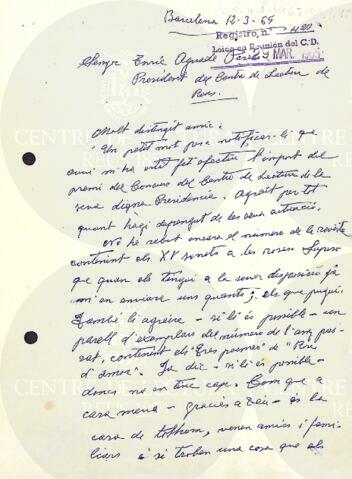 Barcelona 12-3-69
Registro, n.º 420
Leído en Reunión del C.D.
MAR.
Senyor Enric Aguadé
President del Centre de Lectura de
Reus.
Molt distingit amic:
Un petit mot per a notificar-li que
avui m'ha estat fet efectiu l'import del
premi del Concurs del Centre de Lectura de la
seva digna Presidencia. Agraït per tot
quant hagi depengut de la seva actuació.
No he rebut encara el número de la revista
contenint els XV sonets a les roses. Suposo
que quan els tengui a la seva disposició ja
m'en enviara uns quants; els que pugui.
També li agraire - si li és possible - un
parell d'exemplars del número de l'any pas-
sat, contenint els "Tres poemes" de
d'amor". Ja dic - si li és possible -
doncs no en tinc cap. Com que a
casa meva - gracies a Déu - és la
casa de tothom, venen amics i fami-
liars i si troben una cosa que els
CENTRE DE LECTURA